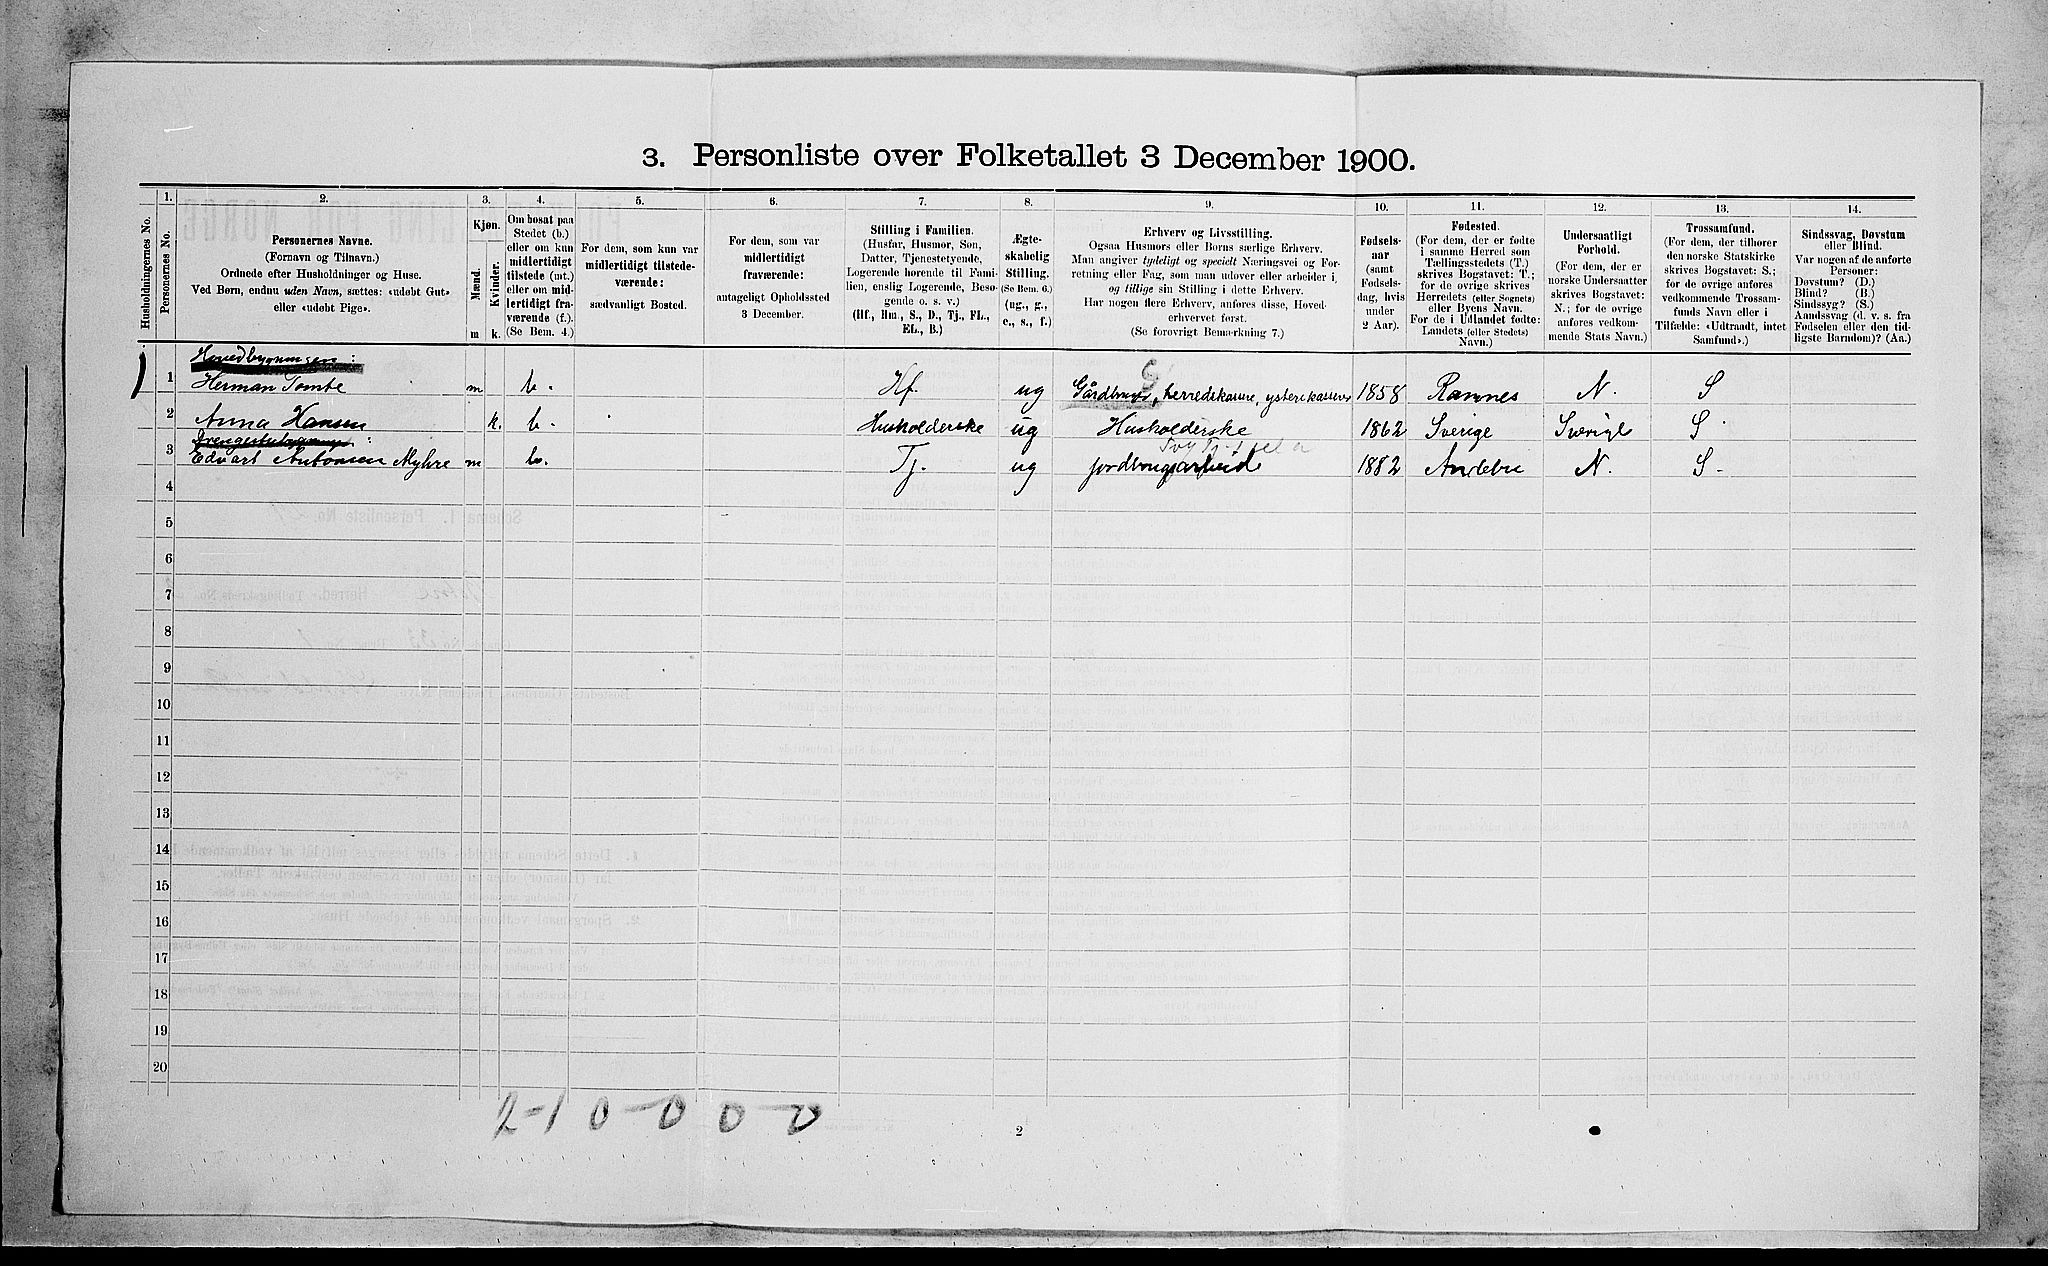 3. Personliste over Folketallet 3 December 1900.
Husholdningernes No.
1.
Personernes No.
2.
Personernes Navne.
(Fornavn og Tilnavn.)
Ordnede efter Husholdninger og Huse.
Ved Børn, endnu uden Navn, sættes: «udøbt Gut»
eller «udøbt Pige».
3.
Kjøn.
Mænd.
Kvinder.
m
k.
4.
Om bosat paa
Stedet (b.)
eller om kun
midlertidigt
tilstede (mt.)
eller om mid-
lertidigt fra-
værende (f.).
(Se Bem. 4.)
5.
For dem, som kun var
midlertidigt tilstede-
værende:
sædvanligt Bosted.
6.
For dem, som var
midlertidigt
fraværende:
antageligt Opholdssted
3 December.
7.
Stilling i Familien.
(Husfar, Husmor, Søn,
Datter, Tjenestetyende,
Logerende hørende til Fami-
lien, enslig Logerende, Besø-
gende o. s. v.)
(Hf., Hm., S., D., Tj., FL.,
EL., B.)
8.
Ægte-
skabelig
Stilling.
(Se Bem. 6.)
(ug., g.,
e., s., f.)
9.
Erhverv og Livsstilling.
Ogsaa Husmors eller Børns særlige Erhverv.
Man angiver tydeligt og specielt Næringsvei og For-
retning eller Fag, som man udøver eller arbeider i,
og tillige sin Stilling i dette Erhverv.
Har nogen flere Erhverv, anføres disse, Hoved-
erhvervet først.
(Se forøvrigt Bemærkning 7.)
10.
Fødsels-
aar
(samt
Fødsels-
dag, hvis
under
2 Aar).
11.
Fødested.
(For dem, der er fødte
i samme Herred som
Tællingsstedets (T.)
skrives Bogstavet: T.;
for de øvrige skrives
Herredets (eller Sognets)
eller Byens Navn.
For de i Udlandet fødte:
Landets (eller Stedets)
Navn.)
12.
Undersaatligt
Forhold.
(For dem, der er
norske Undersaatter
skrives Bogstavet:
N.; for de øvrige
anføres vedkom-
mende Stats Navn.)
13.
Trossamfund.
(For dem, der tilhører
den norske Statskirke
skrives Bogstavet: S.;
for de øvrige anføres
vedkommende Trossam-
funds Navn eller i
Tilfælde: «Udtraadt, intet
Samfund».)
14.
Sindssvag, Døvstum
eller Blind.
Var nogen af de anførte
Personer:
Døvstum? (D.)
Blind? (B.)
Sindssyg? (S.)
Aandssvag (d. v. s. fra
Fødselen eller den tid-
ligste Barndom)? (Aa.)
Hovedbygningen:
1 Herman Tomte m b. Hf. ug Gårdbruger, herredskasse, ysterikasserer 1858 Ramnes N. S
2 Anna Hansen k. b. Husholderske ug Husholderske 1862 Sverige Sverige S.
Drengestubygning:
3 Edvart Antonsen Myhre m b. Tj. ug jordbrugsarbeide 1882 Andebu N. S.
4
5
6
7
8
9
10
11
12
13
14
15
16
17
18
19
20
2-1 0-0 0-0
2